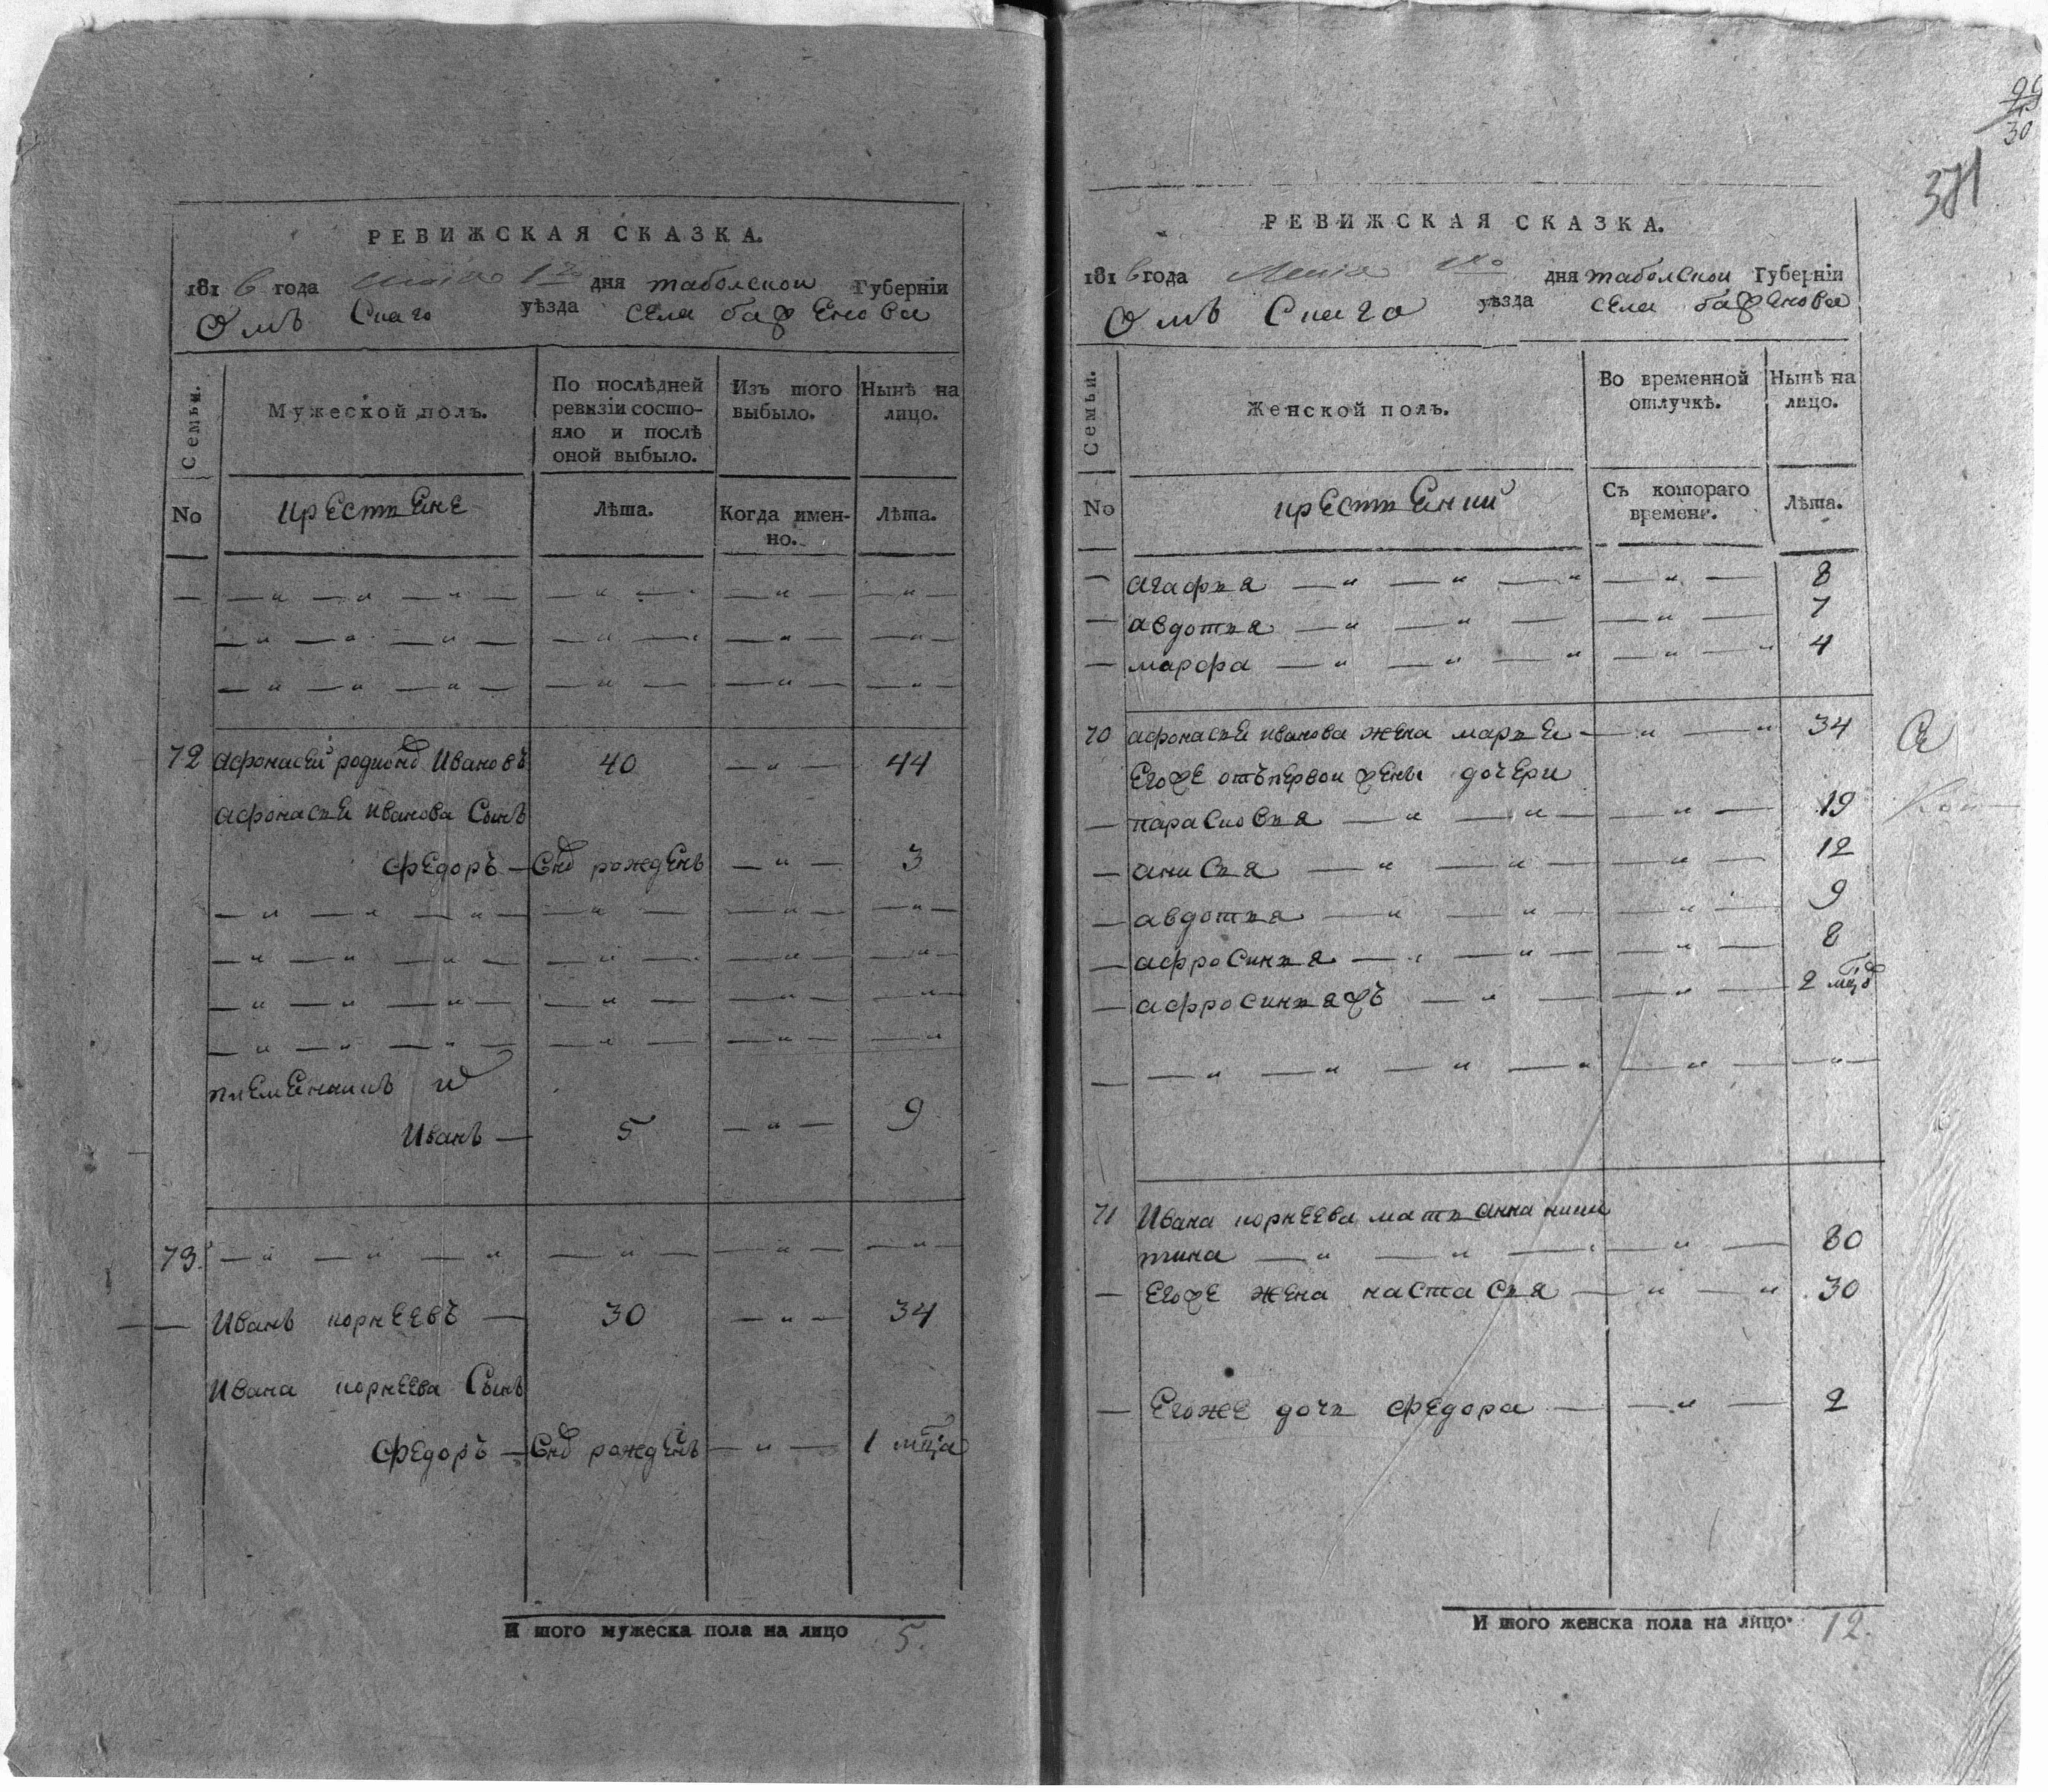 РЕВИЖСКАЯ СКАЗКА.
1816 года маія 1го дня таболскои Губерніи
Омъ Скаго уѣзда села баженова
Семьи.
Мужеской полъ.
По послѣдней ревизіи состояло и послѣ оной выбыло.
Изъ того выбыло.
Нынѣ на лицо.
No
крестьяне
Лѣта.
Когда именно.
Лѣта.
72 афонасеи родионовъ Ивановъ 40 — " — 44
афонасья иванова Сынъ
федоръ — рожденъ — " — 3
племенникъ
Иванъ — 5 — " — 9
73.
Иванъ корнеевъ — 30 — " — 34
Ивана корнеева Сынъ
федоръ — рожденъ — " — 1 мца
И того мужеска пола на лицо 5.
371
30
РЕВИЖСКАЯ СКАЗКА.
1816 года маія 1го дня таболскои Губерніи
Омъ Скаго уѣзда села баженова
Семьи.
Женской полъ.
Во временной отлучкѣ.
Нынѣ на лицо.
No
Съ котораго времени.
Лѣта.
— агафья — " — " — " — " — 8
— авдотья — " — " — — " — 7
— марфа — " — " — " — " — " 4
70 афонасья иванова жена марья — " — " 34
Егоже отъ первои жены дочери
— парасковья — " — " — " — 19
— анисья — " — " — " — 12
— авдотья — " — " — " — 9
— афросинья — " — " — " — 8
— афросиньяжъ — " — — " — 2 мцов
71 Ивана корнеева мать анна ники
тина — " — " — " — " — 80
— Егоже жена настасья — " — " 30
— Егоже дочь федора — — " — 2
И того женска пола на лицо 12.